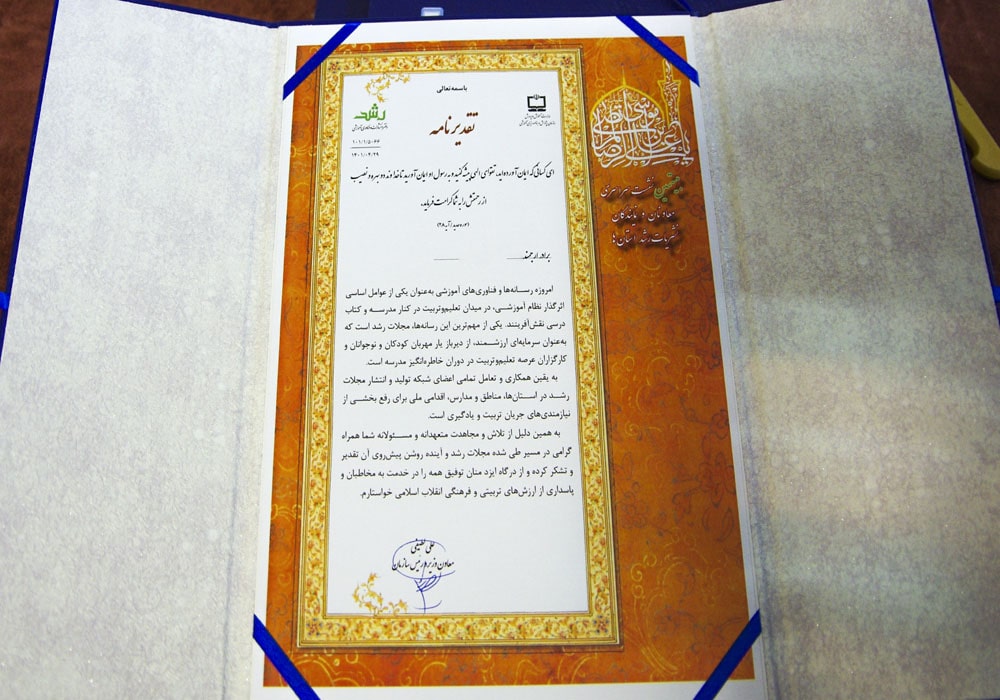 باسمه‌تعالی
رشد
تقدیرنامه
۱۰۱/۱/۵۰۶۶
۱۴۰۱/۰۴/۲۹
ای کسانی که ایمان آورده‌اید، تقوای الهی پیشه کنید و به رسول او ایمان آورید تا خداوند دو بهره و نصیب
از رحمتش را به شما کرامت فرماید.
(سوره حدید/آیه ۲۸)
برادر ارجمند
امروزه رسـانه‌ها و فناوری‌های آموزشی به‌عنوان یکی از عوامل اساسی
اثرگذار نظام آموزشـی، در میدان تعلیم‌وتربیت در کنار مدرسـه و کتاب
درسی نقش‌آفرینند. یکی از مهم‌ترین این رسانه‌ها، مجلات رشد است که
به‌عنوان سرمایه‌ای ارزشـمند، از دیرباز یار مهربان کودکان و نوجوانان و
کارگزاران عرصه تعلیم‌وتربیت در دوران خاطره‌انگیز مدرسه است.
به یقین همکاری و تعامل تمامی اعضای شبکه تولید و انتشار مجلات
رشـد در اسـتان‌ها، مناطق و مدارس، اقدامی ملی برای رفع بخشـی از
نیازمندی‌های جریان تربیت و یادگیری است.
به همین دلیل از تلاش و مجاهدت متعهدانه و مسـئولانه شما همراه
گرامی در مسیر طی شده مجلات رشد و آینده روشن پیش‌روی آن تقدیر
و تشکر کرده و از درگاه ایزد منان توفیق همه را در خدمت به مخاطبان و
پاسداری از ارزش‌های تربیتی و فرهنگی انقلاب اسلامی خواستارم.
علی لطیفی
معاون وزیر و رئیس سازمان
نشست سراسری
معاونان و نمایندگان
نشریات رشد استان‌ها